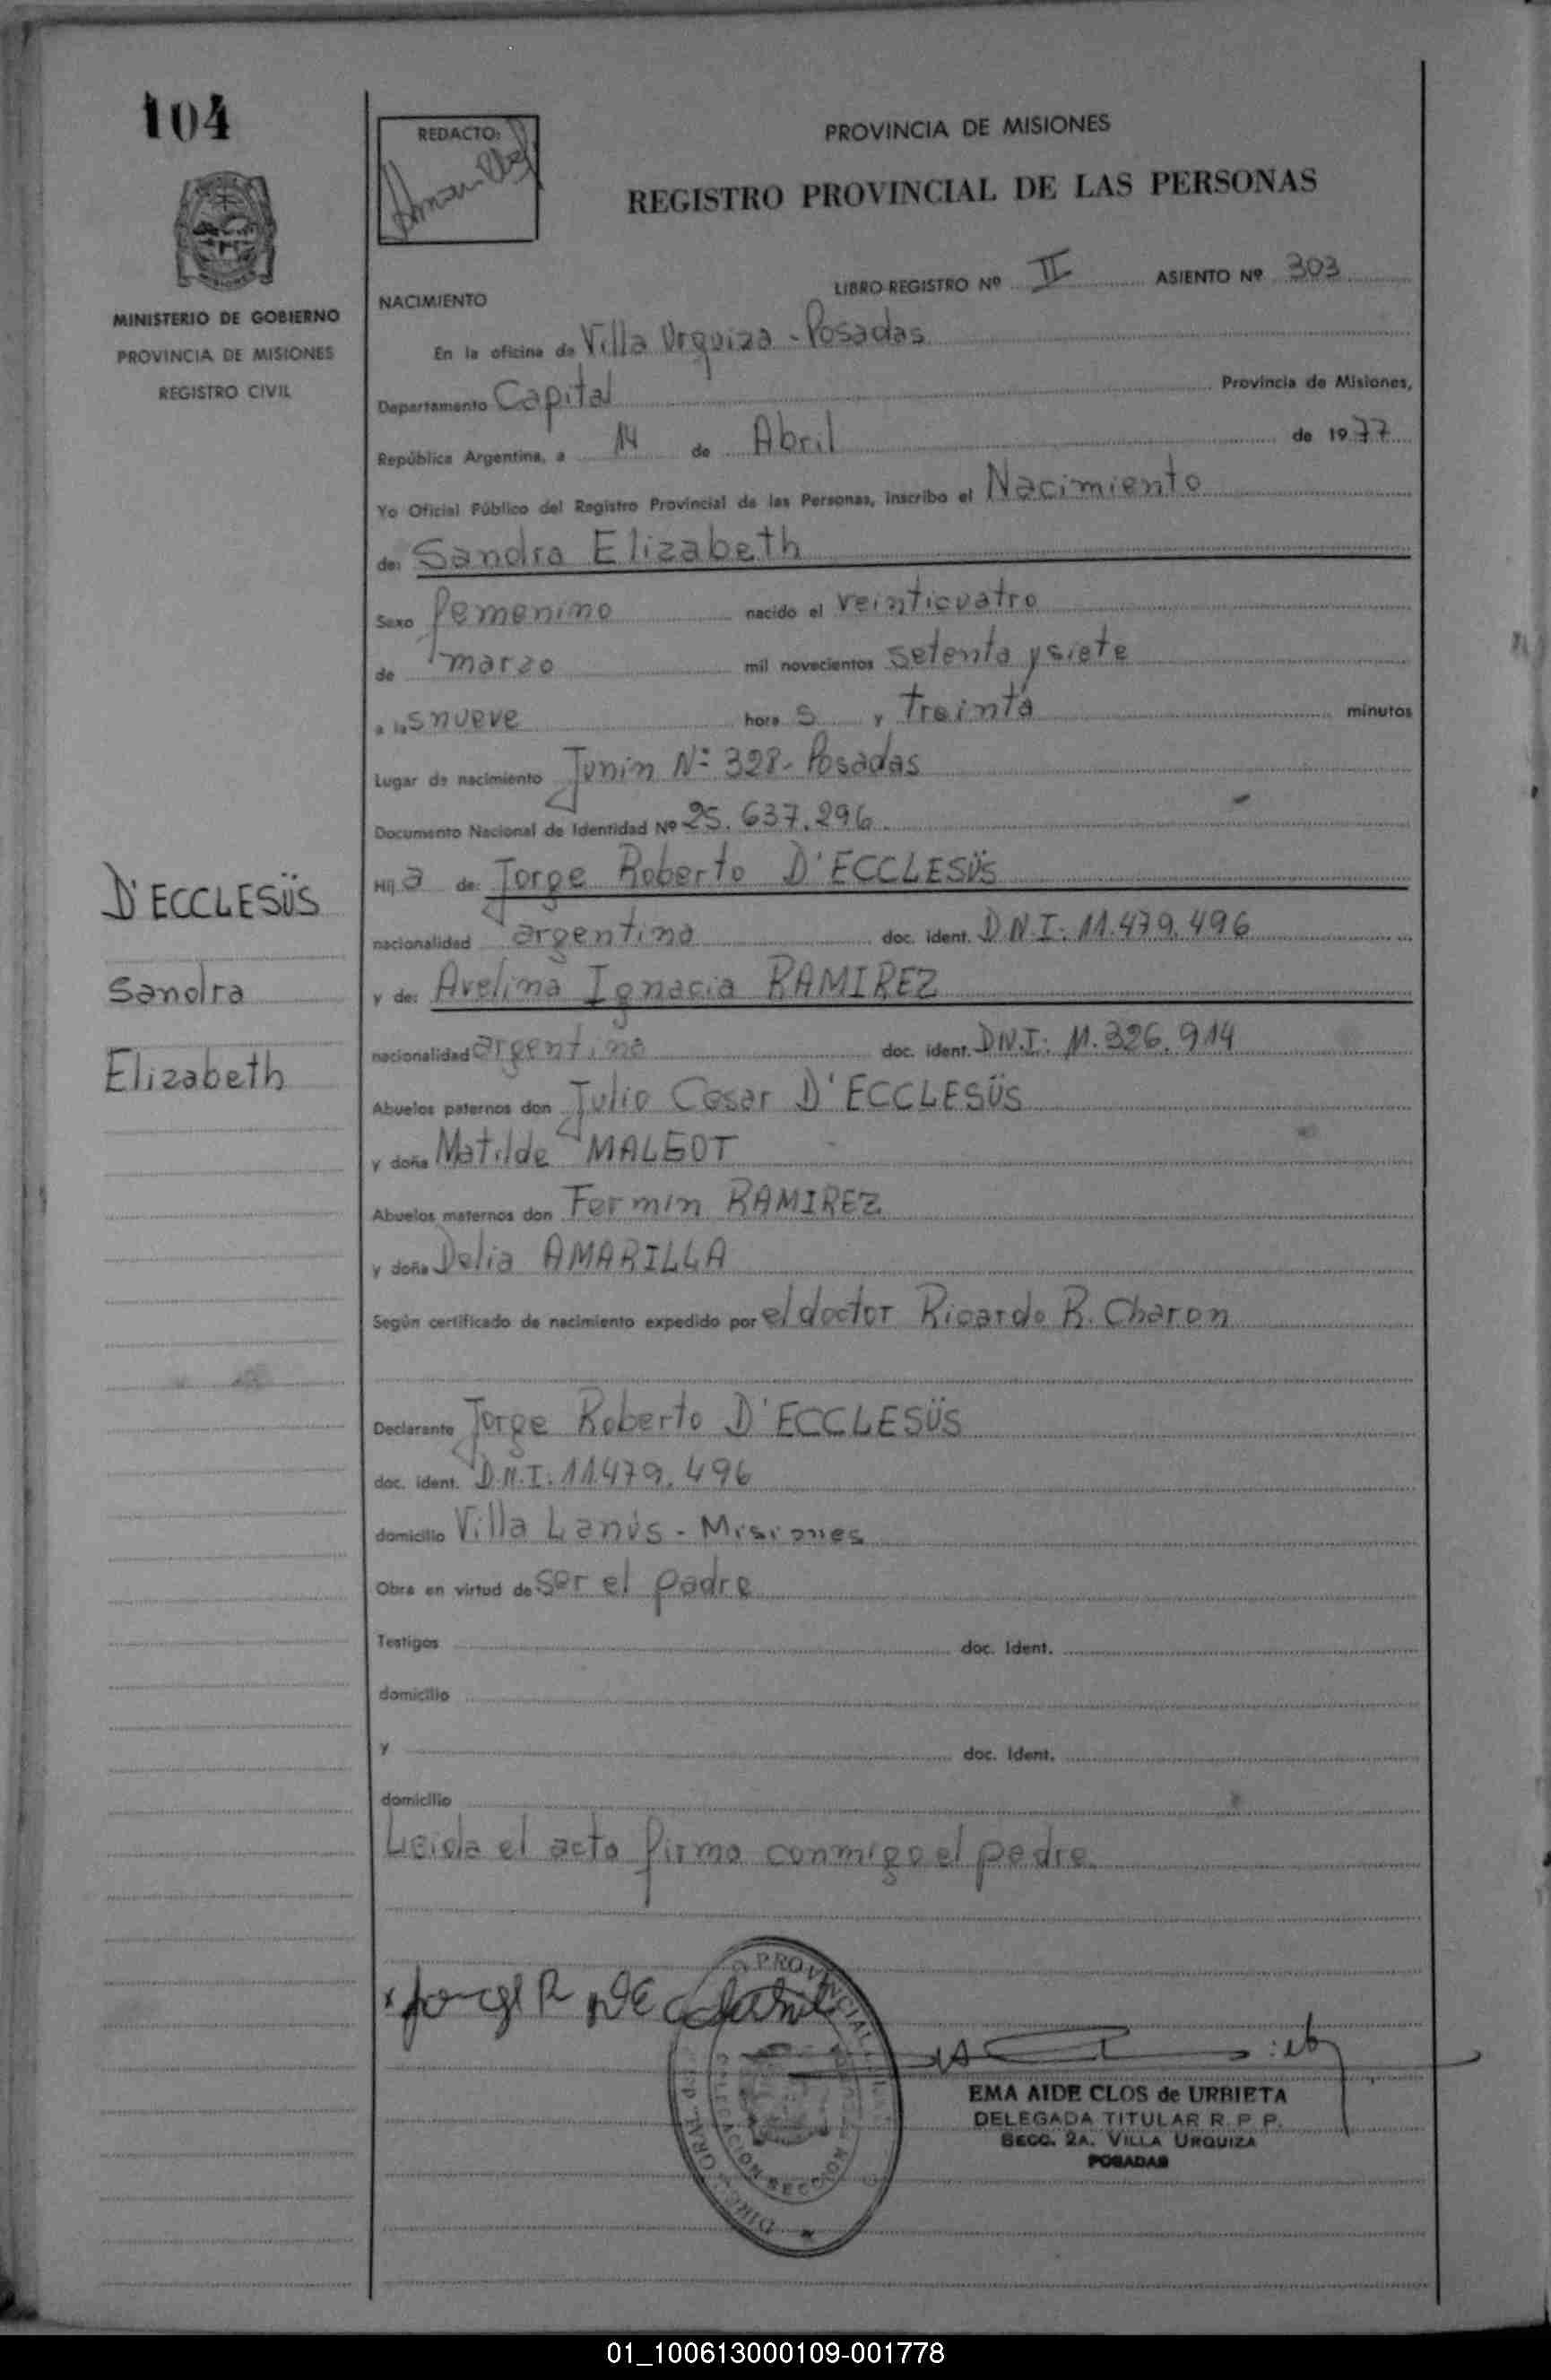 104
REDACTO:
PROVINCIA DE MISIONES
REGISTRO PROVINCIAL DE LAS PERSONAS
MINISTERIO DE GOBIERNO
PROVINCIA DE MISIONES
REGISTRO CIVIL
LIBRO REGISTRO Nº II ASIENTO Nº 303
NACIMIENTO
En la oficina de Villa Urquiza - Posadas
Departamento Capital Provincia de Misiones,
República Argentina, a 14 de Abril de 1977
Yo Oficial Público del Registro Provincial de las Personas, inscribo el Nacimiento
de: Sandra Elizabeth
Sexo femenino nacido el veinticuatro
de marzo mil novecientos setenta y siete
a las nueve horas y treinta minutos
Lugar de nacimiento Junin Nº 328 - Posadas
Documento Nacional de Identidad Nº 25.637.296
Hija de: Jorge Roberto D'ECCLESÜS
nacionalidad argentina doc. ident. D.N.I: 11.479.496
y de: Avelina Ignacia RAMIREZ
nacionalidad argentina doc. ident. DN.I: 11.326.914
Abuelos paternos don Julio Cesar D'ECCLESÜS
y doña Matilde
Abuelos maternos don Fermin RAMIREZ
y doña Delia AMARILLA
Según certificado de nacimiento expedido por el doctor Ricardo R. Charon
Declarante Jorge Roberto D'ECCLESÜS
doc. ident. D.N.I: 11.479.496
domicilio Villa Lanús - Misiones
Obra en virtud de ser el padre
Testigos doc. Ident.
domicilio
y doc. Ident.
domicilio
Leida el acta firma conmigo el padre.
D'ECCLESÜS
Sandra
Elizabeth
EMA AIDE CLOS de URBIETA
DELEGADA TITULAR R. P. P.
SECC. 2A. VILLA URQUIZA
POSADAS
01_100613000109-001778